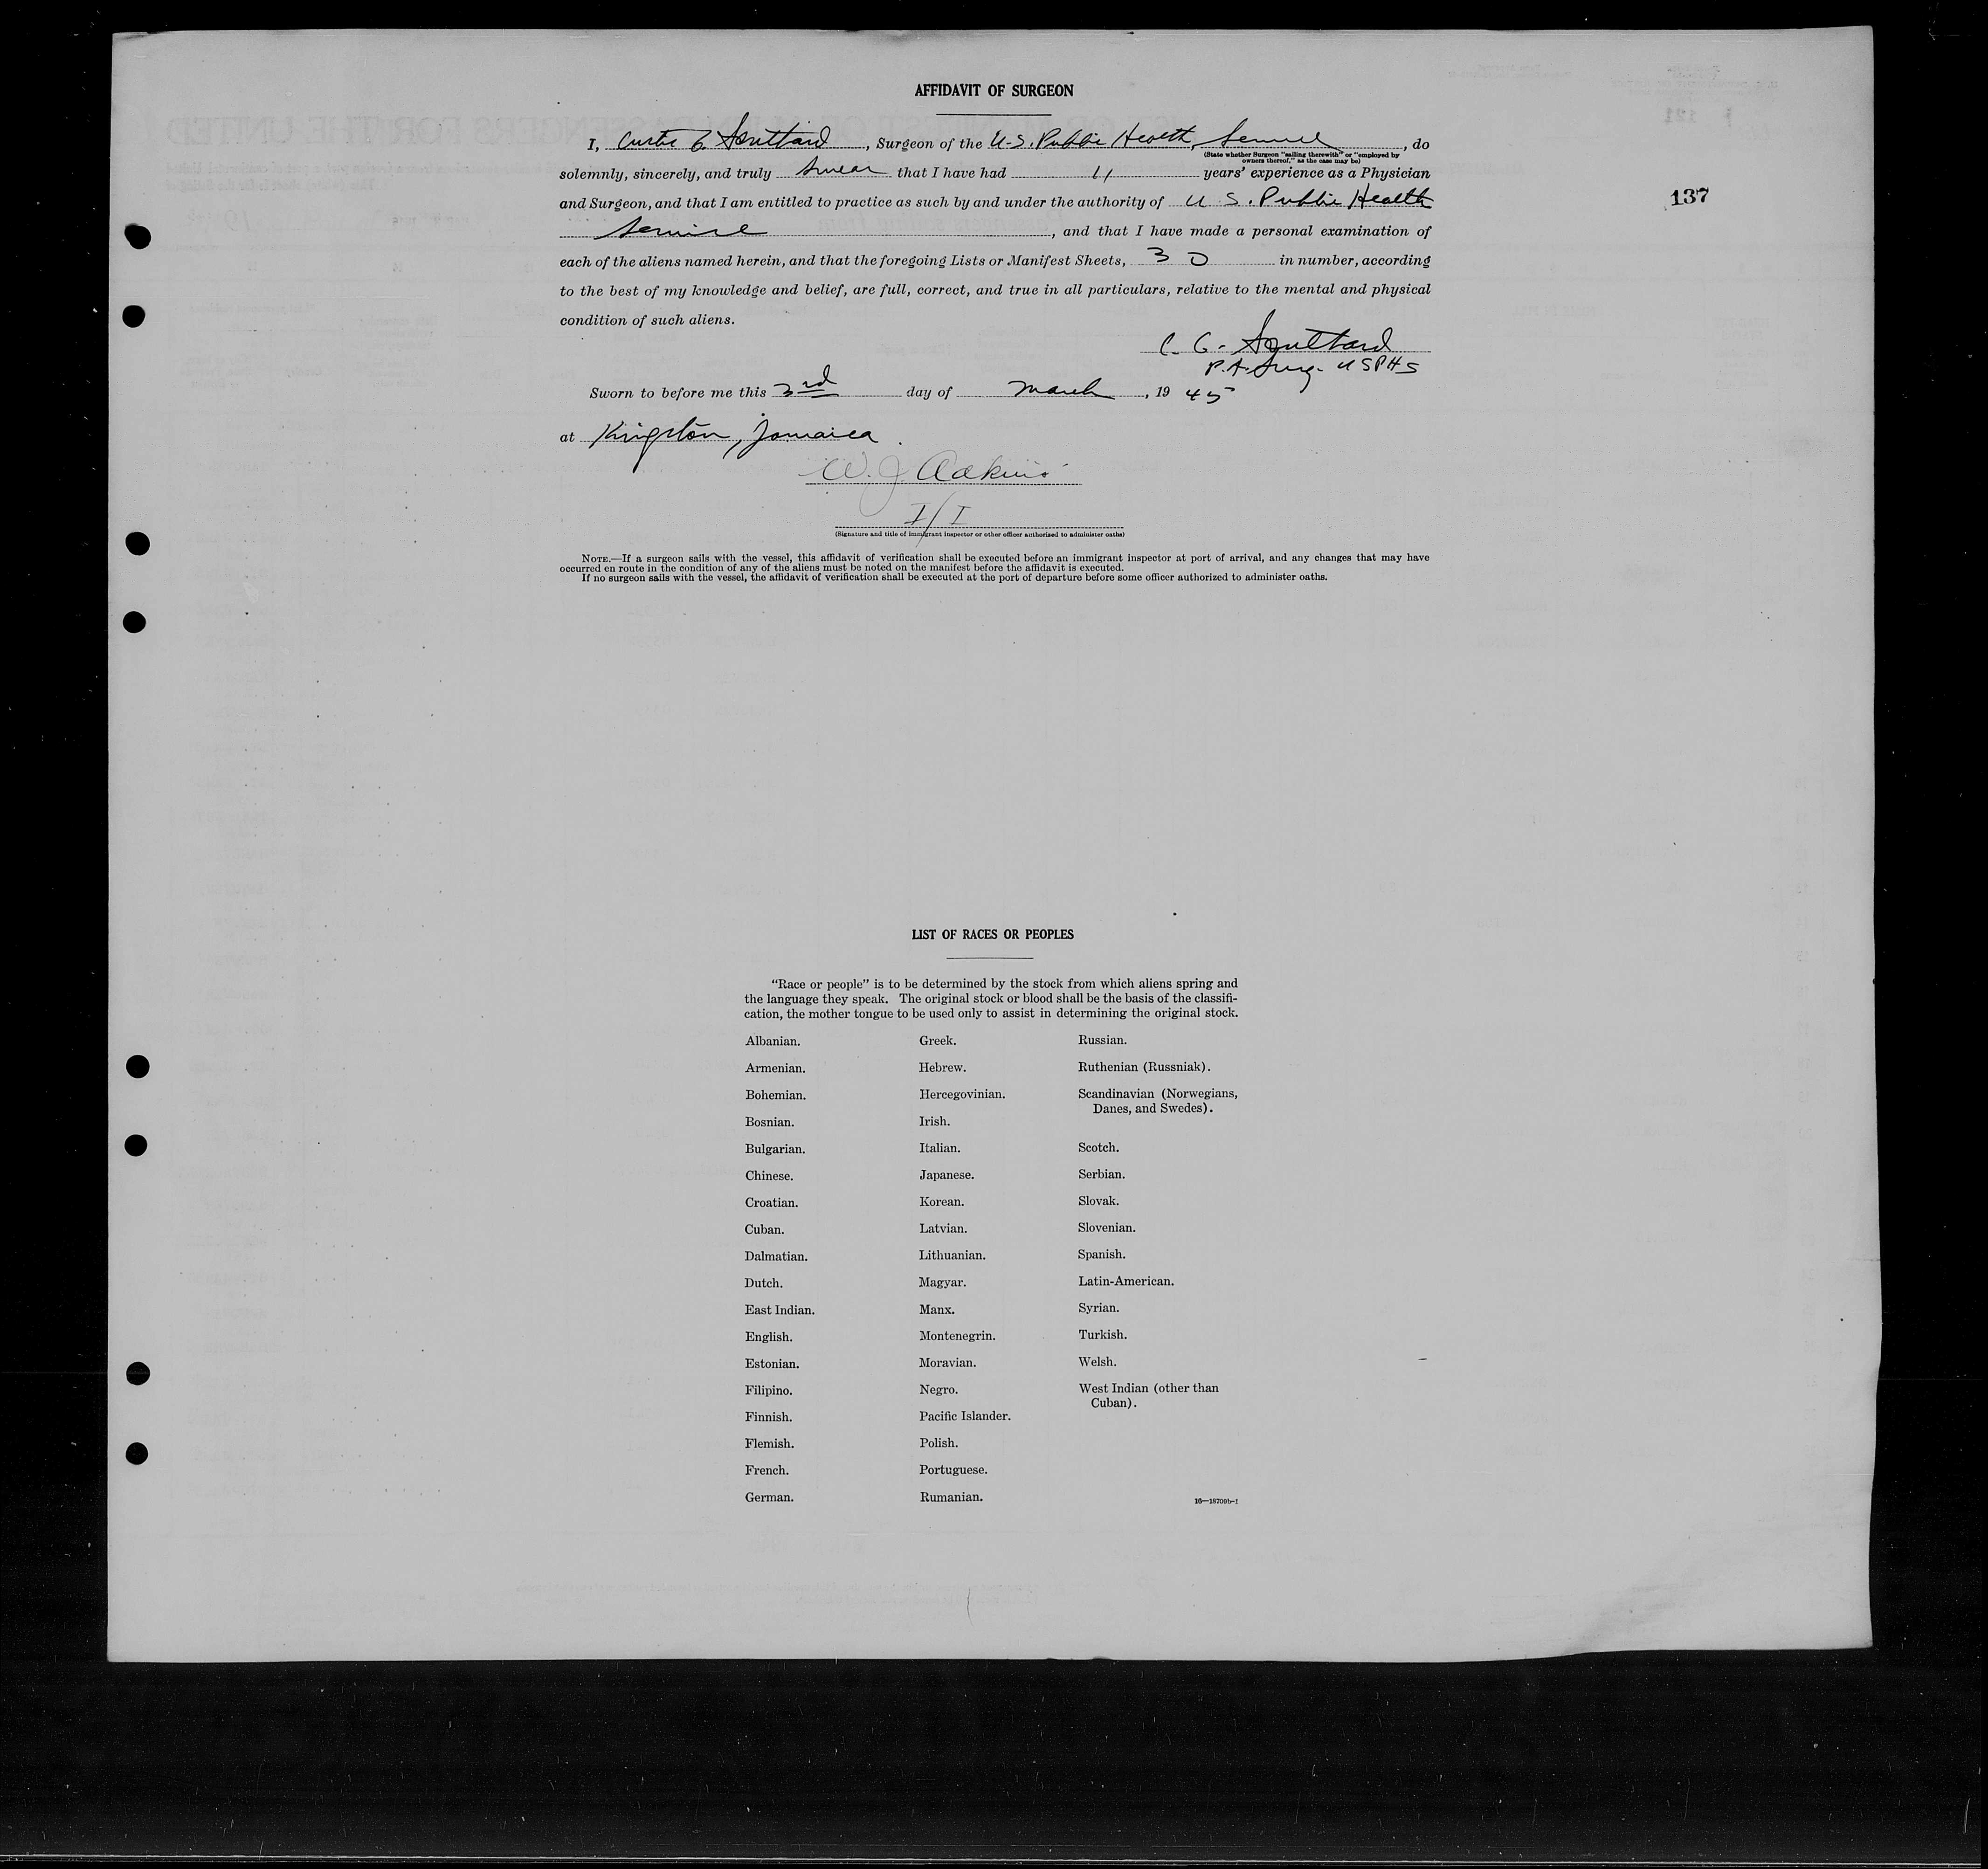 AFFIDAVIT OF SURGEON
I, Curtis G. Southard, Surgeon of the U.S. Public Health, Service, do
(State whether Surgeon "sailing therewith" or "employed by
owners thereof," as the case may be)
solemnly, sincerely, and truly swear that I have had 11 years' experience as a Physician
137
and Surgeon, and that I am entitled to practice as such by and under the authority of U.S. Public Health
Service, and that I have made a personal examination of
each of the aliens named herein, and that the foregoing Lists or Manifest Sheets, 30 in number, according
to the best of my knowledge and belief, are full, correct, and true in all particulars, relative to the mental and physical
condition of such aliens.
C. G. Southard
P.A. Surg. USPHS
Sworn to before me this 3rd day of March, 1945
at Kingston, Jamaica.
W. J. Adkins
I/I
(Signature and title of immigrant inspector or other officer authorized to administer oaths)
NOTE.—If a surgeon sails with the vessel, this affidavit of verification shall be executed before an immigrant inspector at port of arrival, and any changes that may have
occurred en route in the condition of any of the aliens must be noted on the manifest before the affidavit is executed.
If no surgeon sails with the vessel, the affidavit of verification shall be executed at the port of departure before some officer authorized to administer oaths.
LIST OF RACES OR PEOPLES
"Race or people" is to be determined by the stock from which aliens spring and
the language they speak. The original stock or blood shall be the basis of the classifi-
cation, the mother tongue to be used only to assist in determining the original stock.
Albanian.
Armenian.
Bohemian.
Bosnian.
Bulgarian.
Chinese.
Croatian.
Cuban.
Dalmatian.
Dutch.
East Indian.
English.
Estonian.
Filipino.
Finnish.
Flemish.
French.
German.
Greek.
Hebrew.
Hercegovinian.
Irish.
Italian.
Japanese.
Korean.
Latvian.
Lithuanian.
Magyar.
Manx.
Montenegrin.
Moravian.
Negro.
Pacific Islander.
Polish.
Portuguese.
Rumanian.
Russian.
Ruthenian (Russniak).
Scandinavian (Norwegians,
Danes, and Swedes).
Scotch.
Serbian.
Slovak.
Slovenian.
Spanish.
Latin-American.
Syrian.
Turkish.
Welsh.
West Indian (other than
Cuban).
16—18709b-1